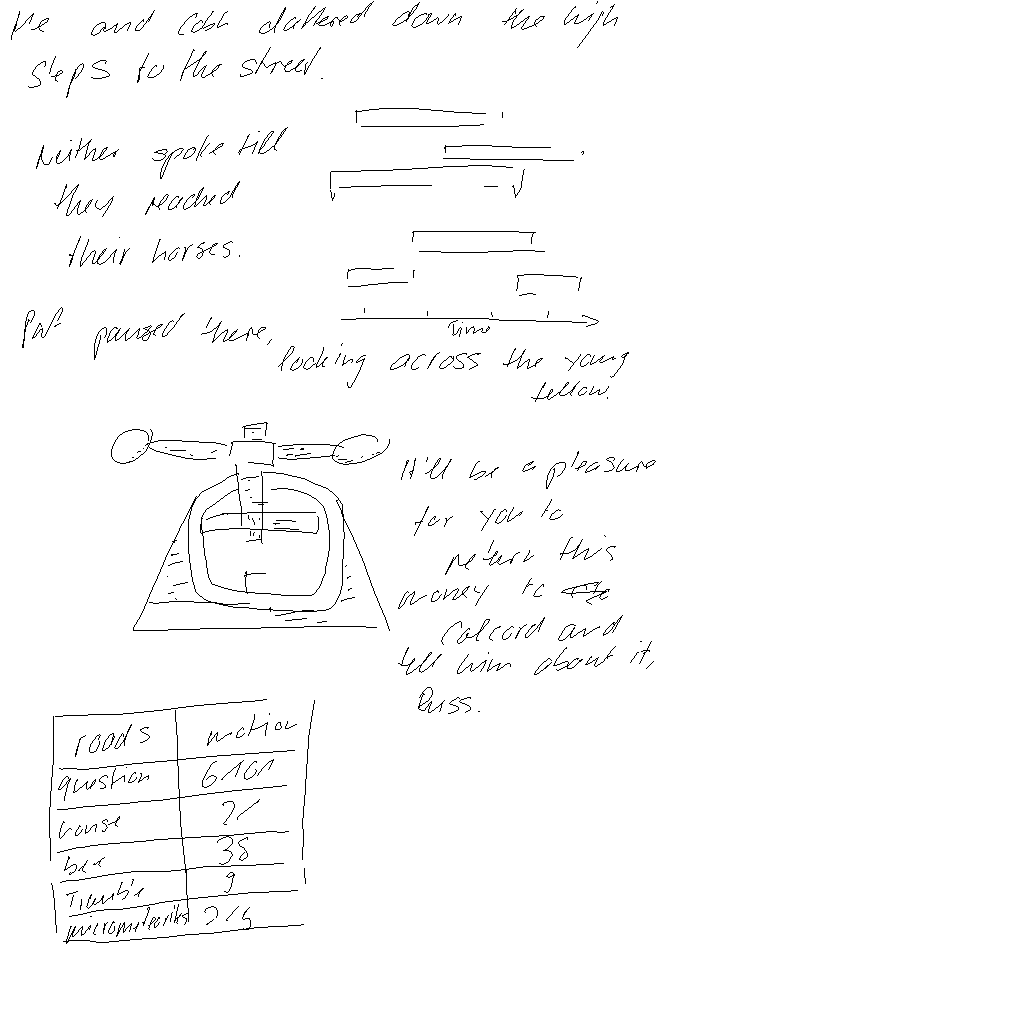 He and Cash clattered down the high
steps to the street.
Neither spoke till
they reached
their horses.
Time
Pat paused there,
looking across the young
fellow.
It'll be a pleasure
for you to
return this
money to
Colcord and
tell him about it,
Russ.
roads motion
question 6161
house 21
bee 38
Trouble 9
micrometeorites 215